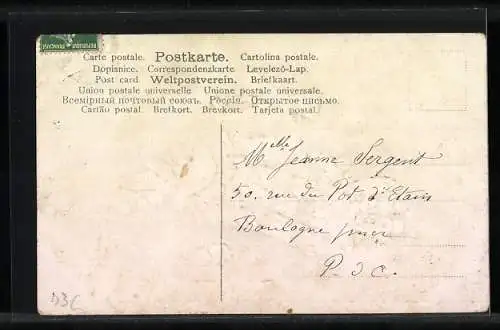 Carte postale. Postkarte. Cartolina postale.
Dopisnice. Correspondenzkarte. Levelező-Lap.
Post card Weltpostverein. Briefkaart.
Union postale universelle Unione postale universale.
Всемірный почтовый союзъ. Россія. Открытое письмо.
Cartão postal. Brefkort. Brevkort. Tarjeta postal.
Mlle Jeanne Sergent
50, rue du Pot d'Etain
Boulogne s/mer
P. d C.